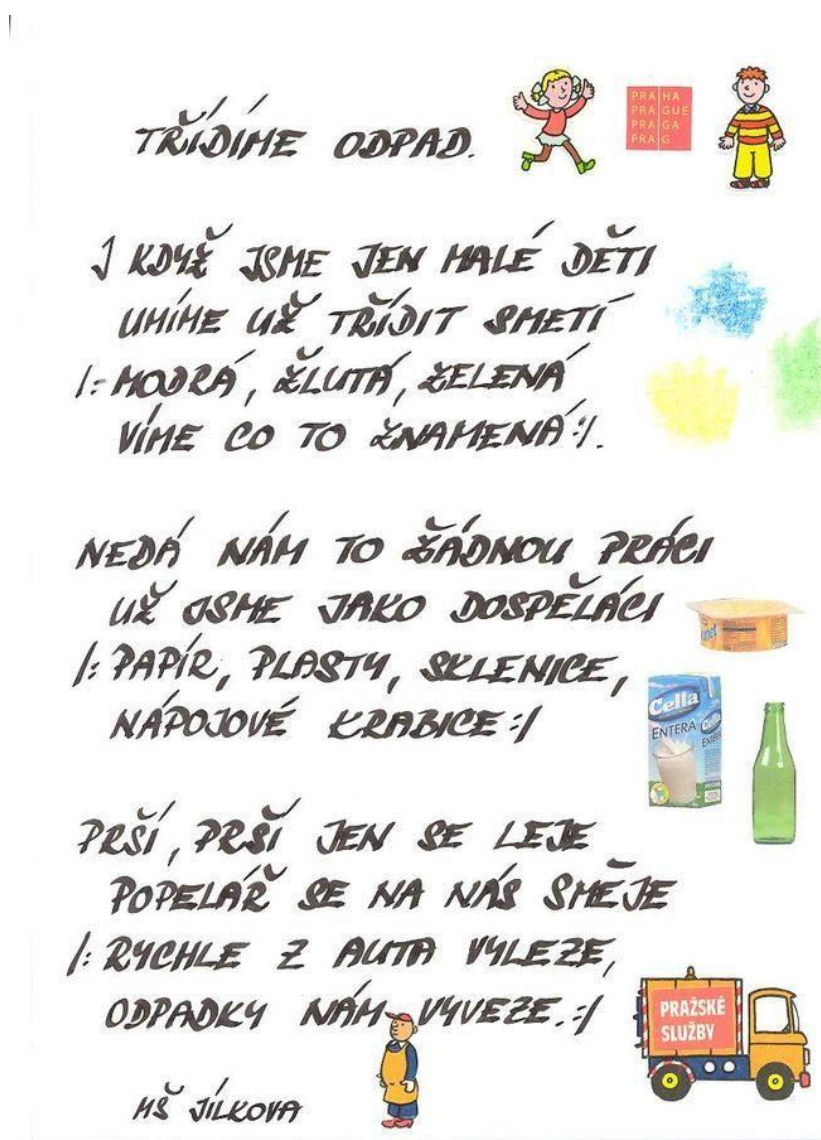 TŘÍDÍME ODPAD.
PRA HA
PRA GUE
PRA GA
PRA G
I KDYŽ JSME JEN MALÉ DĚTI
UMÍME UŽ TŘÍDIT SMETÍ
/:MODRÁ, ŽLUTÁ, ZELENÁ
VÍME CO TO ZNAMENÁ:/.
NEDÁ NÁM TO ŽÁDNOU PRÁCI
UŽ JSME JAKO DOSPĚLÁCI
/:PAPÍR, PLASTY, SKLENICE,
NÁPOJOVÉ KRABICE:/
Cella
ENTERA
Cella
PRŠÍ, PRŠÍ JEN SE LEJE
POPELÁŘ SE NA NÁS SMĚJE
/:RYCHLE Z AUTA VYLEZE,
ODPADKY NÁM VYVEZE.:/
PRAŽSKÉ
SLUŽBY
MŠ JÍLKOVA